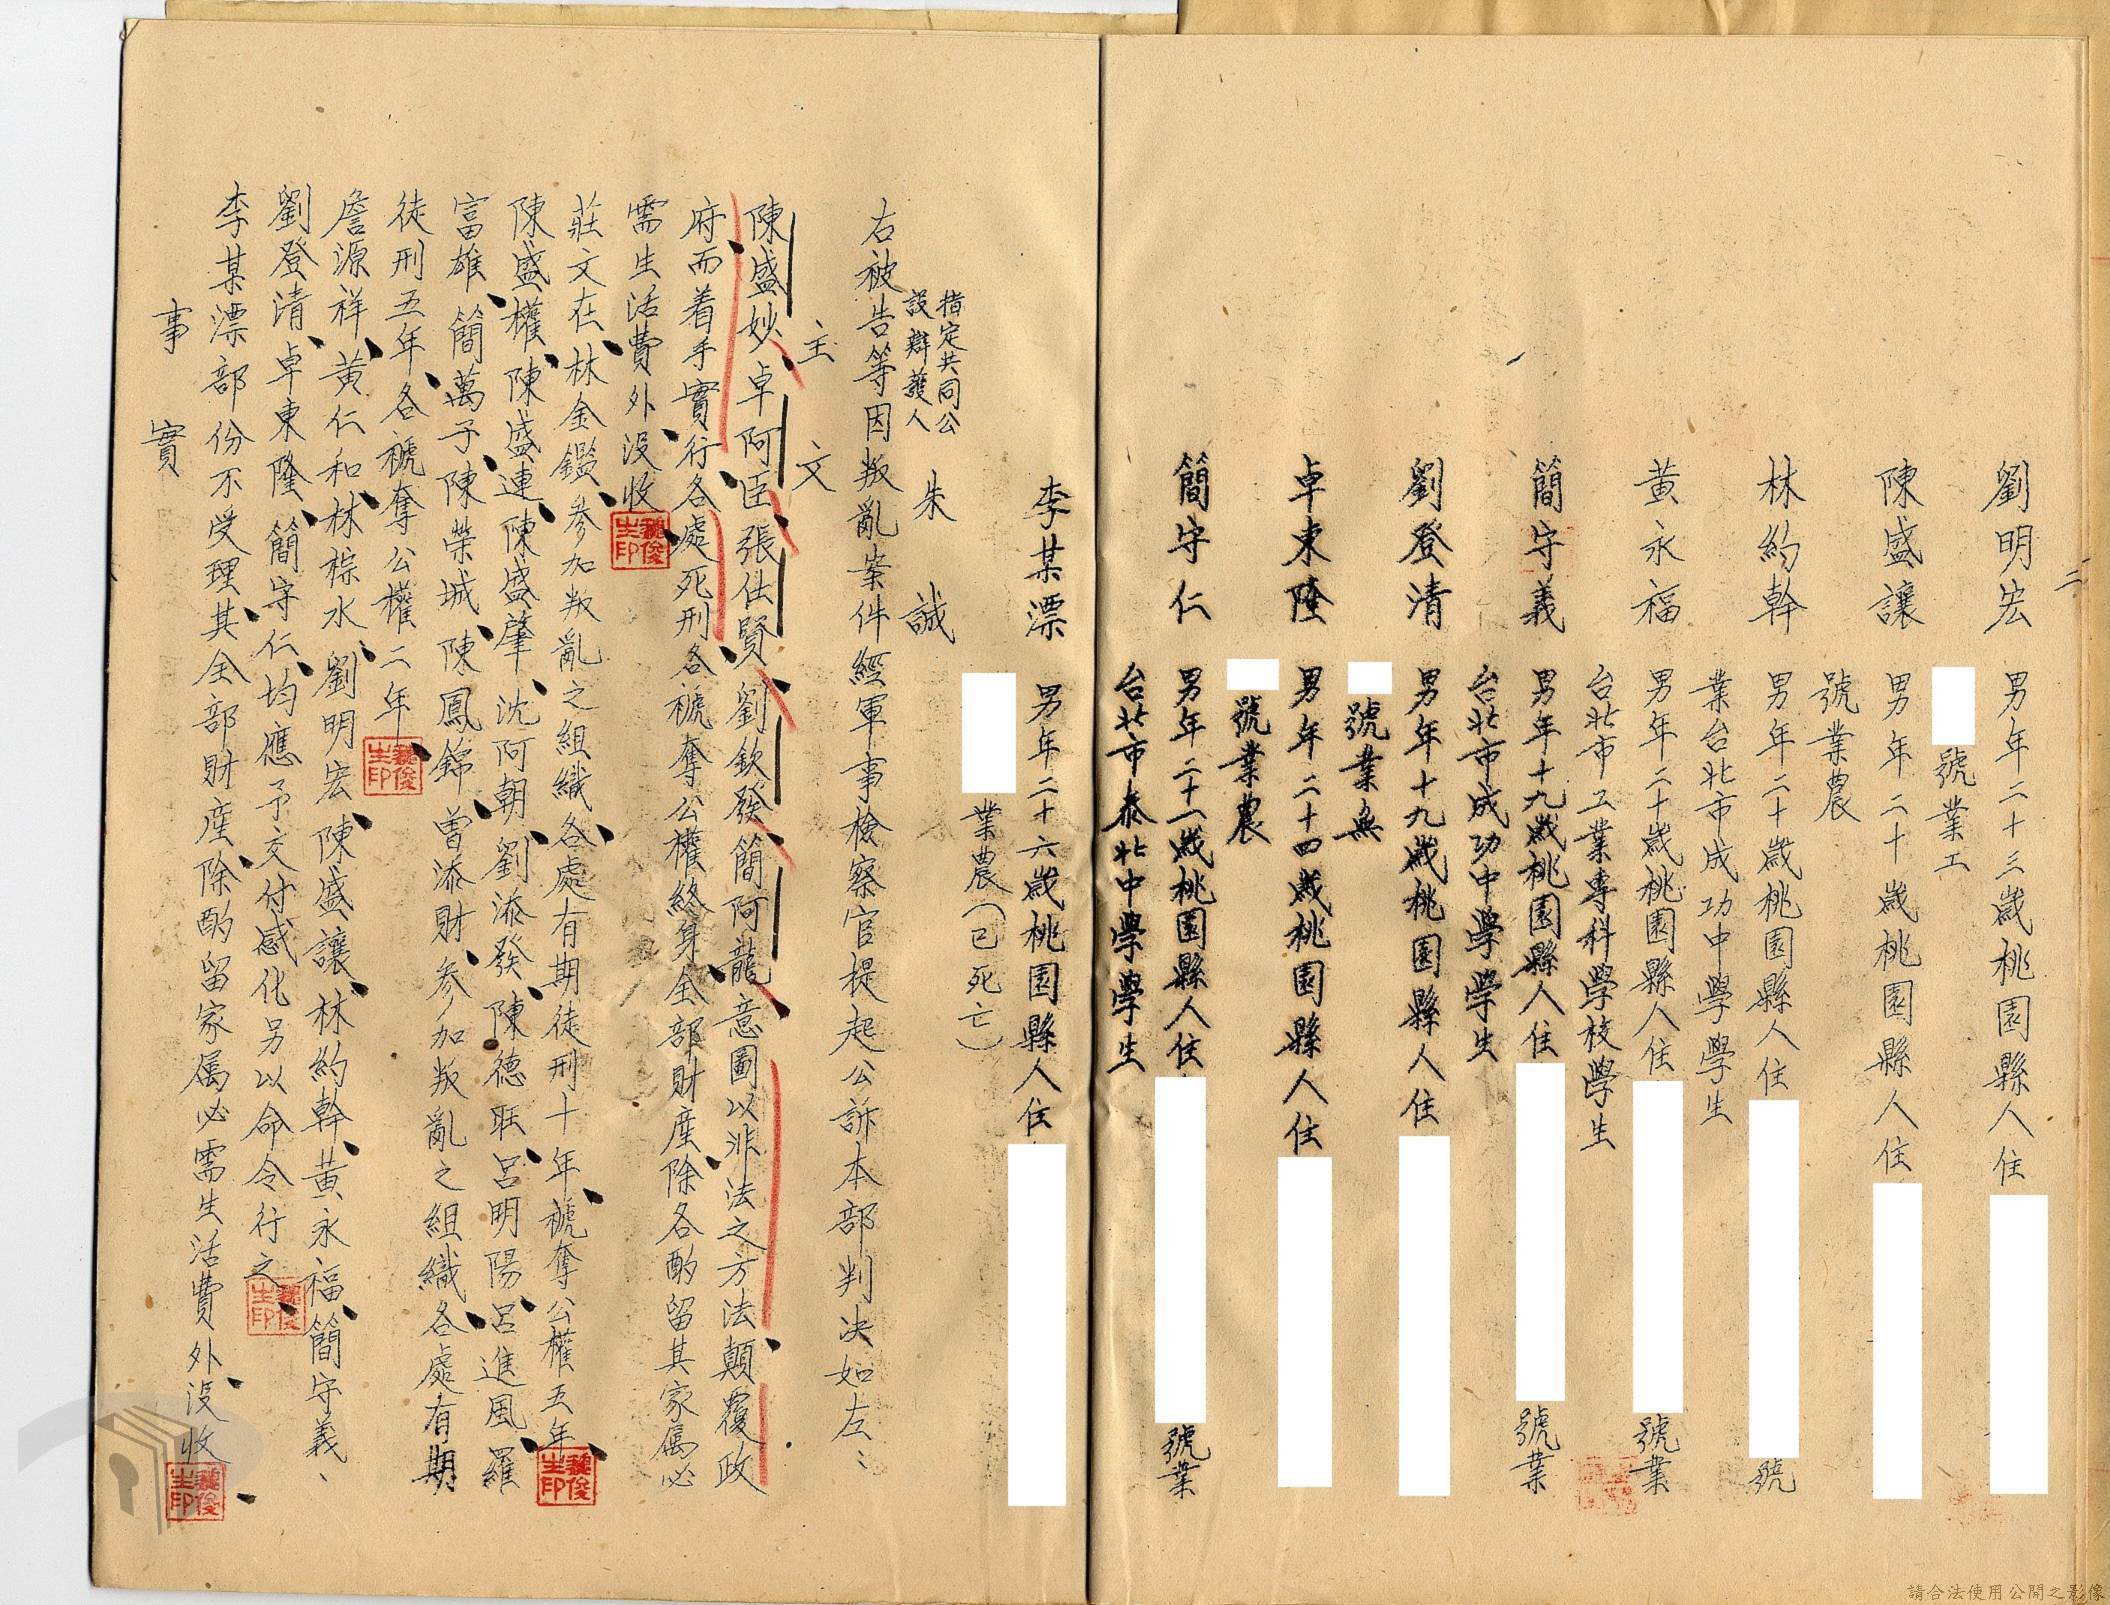 二
劉明宏 男年二十三歲桃園縣人住
號業工
陳盛讓 男年二十歲桃園縣人住
號業農
林約幹 男年二十歲桃園縣人住 號
業台北市成功中學學生
黃永福 男年二十歲桃園縣人住 號業
台北市工業專科學校學生
簡守義 男年十九歲桃園縣人住 號業
台北市成功中學學生
劉登清 男年十九歲桃園縣人住
號業無
卓東隆 男年二十四歲桃園縣人住
號業農
簡守仁 男年二十一歲桃園縣人住 號業
台北市泰北中學學生
李某漂 男年二十六歲桃園縣人住
業農(已死亡)
指定共同公
設辯護人 朱誠
右被告等因叛亂案件經軍事檢察官提起公訴本部判決如左：
主文
陳盛妙、卓阿臣、張仕賢、劉欽發、簡阿龍、意圖以非法之方法、顛覆政
府、而着手實行、各處死刑、各褫奪公權終身、全部財產、除各酌留其家屬必
需生活費外、沒收、
莊文在、林金鑑、參加叛亂之組織、各處有期徒刑十年、褫奪公權五年、
陳盛權、陳盛連、陳盛肇、沈阿朝、劉添發、陳德旺、呂明陽、呂進風、羅
富雄、簡萬子、陳榮城、陳鳳錦、曾添財、參加叛亂之組織、各處有期
徒刑五年、各褫奪公權二年、
詹源祥、黃仁和、林棕水、劉明宏、陳盛讓、林約幹、黃永福、簡守義、
劉登清、卓東隆、簡守仁、均應予交付感化、另以命令行之、
李某漂部份不受理、其全部財產、除酌留家屬必需生活費外、沒收、
事實
魏俊生印
魏俊生印
魏俊生印
魏俊生印
魏俊生印
請合法使用公開之影像